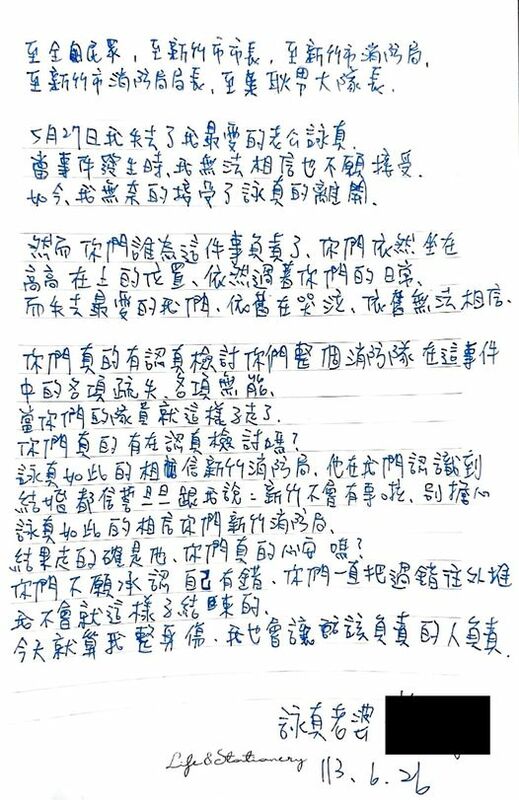 至全國民眾，至新竹市市長，至新竹市消防局，
至新竹市消防局局長，至集耿男大隊長，
5月27日我失去了我最愛的老公詠真.
當事件發生時、我無法相信也不願接受.
如今、我無奈的接受了詠真的離開.
然而你們誰為這件事負責了、你們依然坐在
高高在上的位置、依然過著你們的日常、
而失去最愛的我們、依舊在哭泣、依舊無法相信.
你們真的有認真檢討你們整個消防隊在這事件
中的各項疏失、各項無能.
當你們的隊員就這樣子走了.
你們真的有在認真檢討嗎?
詠真如此的相信新竹消防局、他在我們認識到
結婚都信誓旦旦跟我說：新竹不會有事啦、別擔心
詠真如此的相信你們新竹消防局.
結果走的確是他、你們真的心安嗎?
你們不願承認自己有錯、你們一直把過錯往外推
我不會就這樣子結束的.
今天就算我整身傷、我也會讓該負責的人負責.
詠真老婆
Life&Stationery
113.6.26